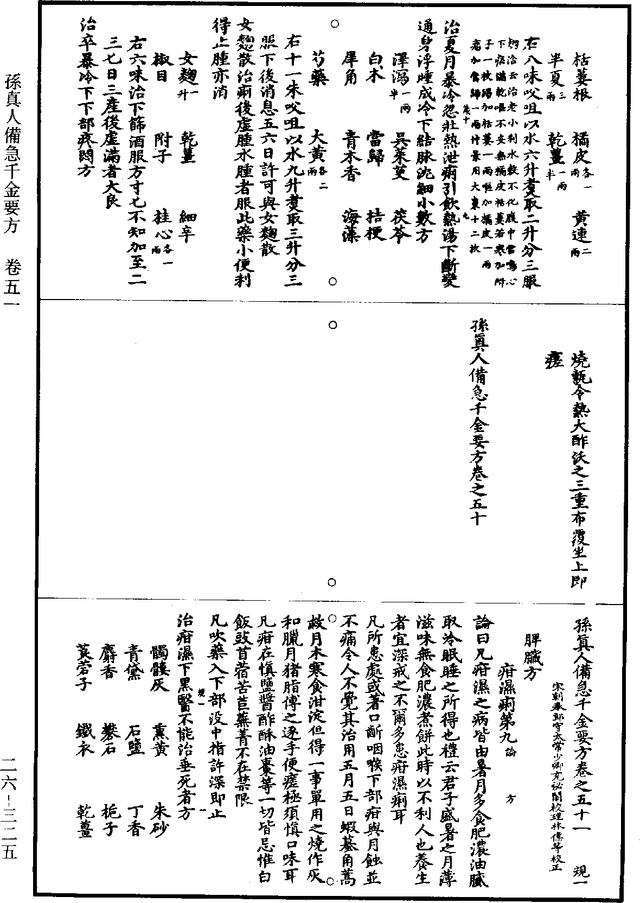 括蔞根 橘皮各一兩 黃連二兩
半夏三兩 乾薑一兩半
右八味㕮咀以水六升煮取二升分三服
治夏月暴冷忽壯熱泄痢引飲熱湯下斷變
通身浮腫成冷下結脉沈細小數方
澤瀉一兩半 吳茱萸 茯苓
白朮 當歸 桔梗
犀角 青木香 海藻
芍藥 大黃各二兩
右十一味㕮咀以水九升煮取三升分三
服下後消息五六日許可與女麴散
女麴散治痢後虛腫水腫者服此藥小便利
得止腫亦消
女麴一升 乾薑 細辛
椒目 附子 桂心各一兩
右六味治下篩酒服方寸匕不知加至二
三匕日三產後虛滿者大良
治卒暴冷下下部疼悶方
燒甎令熱大酢沃之三重布覆坐上即
差
孫真人備急千金要方卷之五十
孫真人備急千金要方卷之五十一 規一
宋朝奉郎守太常少卿充祕閣校理林億等校正
脾臟方
疳濕痢第九論 方
論曰凡疳濕之病皆由暑月多食肥濃油膩
取冷眠睡之所得也禮云君子盛暑之月薄
滋味無食肥濃煮餅此時以不利人也養生
者宜深戒之不爾多患疳濕痢耳
凡所患處或著口齗咽喉下部疳與月蝕並
不痛令人不覺其治用五月五日蝦蟇角蒿
救月木寒食泔淀但得一事單用之燒作灰
和臘月猪脂傅之逐手便瘥極須慎口味耳
凡疳在慎鹽醬酢酥油棗等一切皆忌惟白
飯豉苜蓿苦苣蕪菁不在禁限
凡吹藥入下部没中指許深即止
治疳濕下黑醫不能治垂死者方
髑髏灰 熏黃 朱砂
青黛 石鹽 丁香
麝香 礬石 梔子
莨菪子 鐵衣 乾薑
孫真人備急千金要方 卷五一
二六-三二五